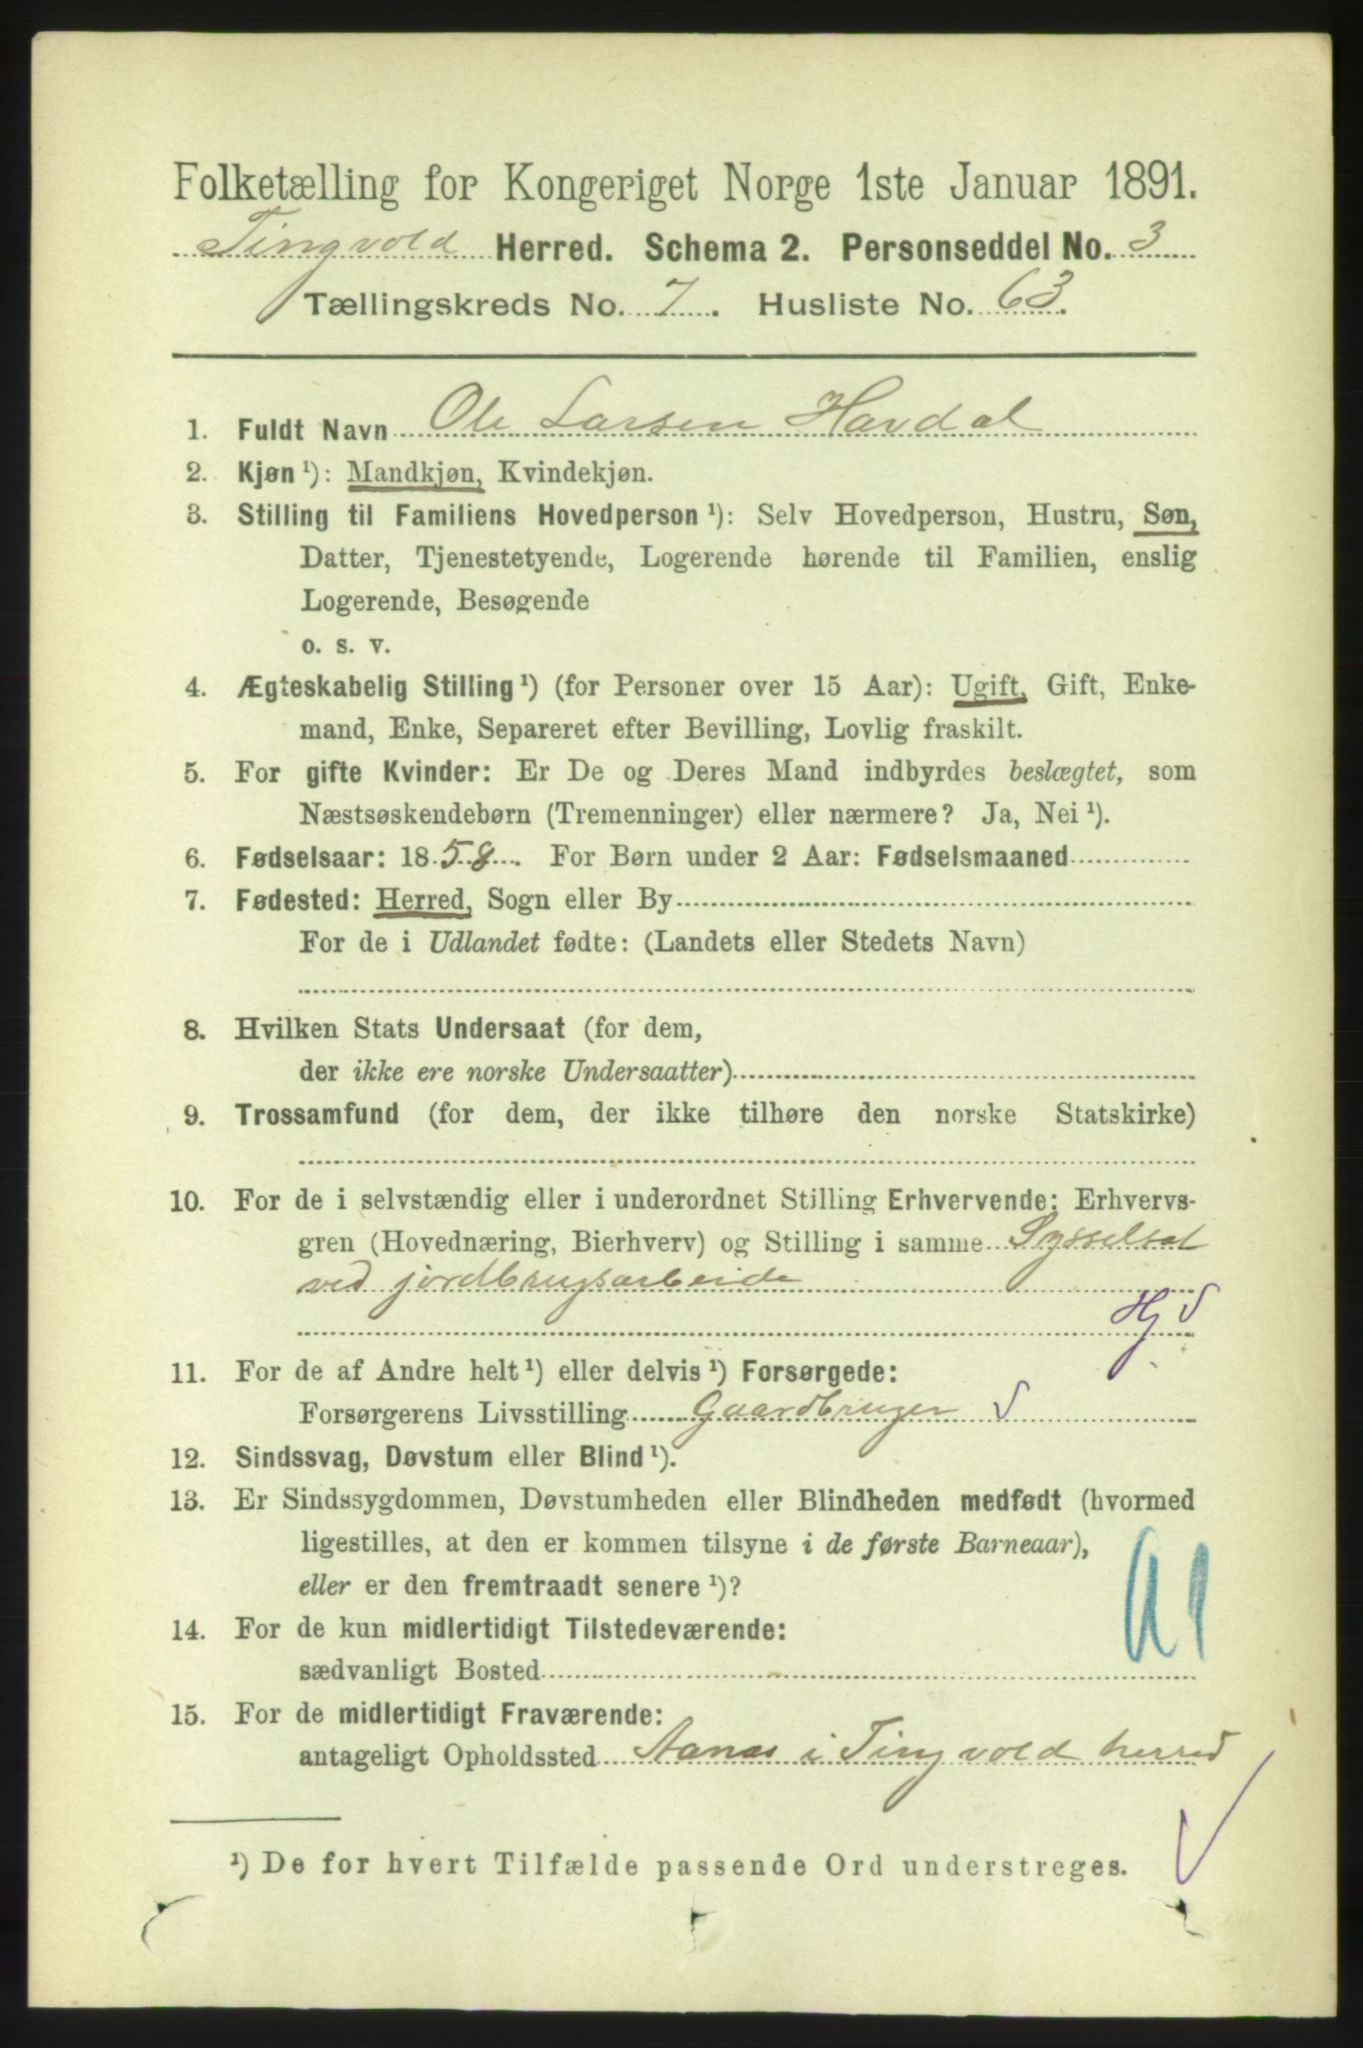 Folketælling for Kongeriget Norge 1ste Januar 1891.
Tingvold Herred. Schema 2. Personseddel No. 3
Tællingskreds No. 7. Husliste No. 63.
1. Fuldt Navn Ole Larsen Havdal
2. Kjøn ¹): Mandkjøn, Kvindekjøn.
3. Stilling til Familiens Hovedperson ¹): Selv Hovedperson, Hustru, Søn,
Datter, Tjenestetyende, Logerende hørende til Familien, enslig
Logerende, Besøgende
o. s. v.
4. Ægteskabelig Stilling ¹) (for Personer over 15 Aar): Ugift, Gift, Enke-
mand, Enke, Separeret efter Bevilling, Lovlig fraskilt.
5. For gifte Kvinder: Er De og Deres Mand indbyrdes beslægtet, som
Næstsøskendebørn (Tremenninger) eller nærmere? Ja, Nei ¹).
6. Fødselsaar: 1858. For Børn under 2 Aar: Fødselsmaaned
7. Fødested: Herred, Sogn eller By
For de i Udlandet fødte: (Landets eller Stedets Navn)
8. Hvilken Stats Undersaat (for dem,
der ikke ere norske Undersaatter)
9. Trossamfund (for dem, der ikke tilhøre den norske Statskirke)
10. For de i selvstændig eller i underordnet Stilling Erhvervende: Erhvervs-
gren (Hovednæring, Bierhverv) og Stilling i samme Sysselsat
ved jordbrugsarbeide
Hj
11. For de af Andre helt ¹) eller delvis ¹) Forsørgede:
Forsørgerens Livsstilling Gaardbruger
12. Sindssvag, Døvstum eller Blind ¹).
13. Er Sindssygdommen, Døvstumheden eller Blindheden medfødt (hvormed
ligestilles, at den er kommen tilsyne i de første Barneaar),
eller er den fremtraadt senere ¹)?
14. For de kun midlertidigt Tilstedeværende:
sædvanligt Bosted
15. For de midlertidigt Fraværende:
antageligt Opholdssted Aanæs i Tingvold herred
¹) De for hvert Tilfælde passende Ord understreges.